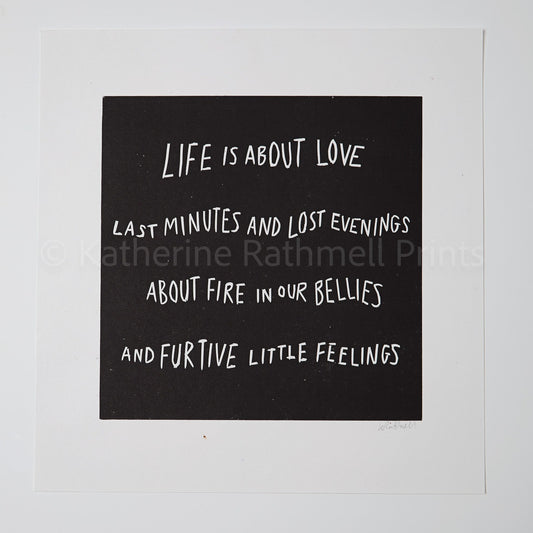 LIFE IS ABOUT LOVE
LAST MINUTES AND LOST EVENINGS
© Katherine Rathmell Prints
ABOUT FIRE IN OUR BELLIES
AND FURTIVE LITTLE FEELINGS